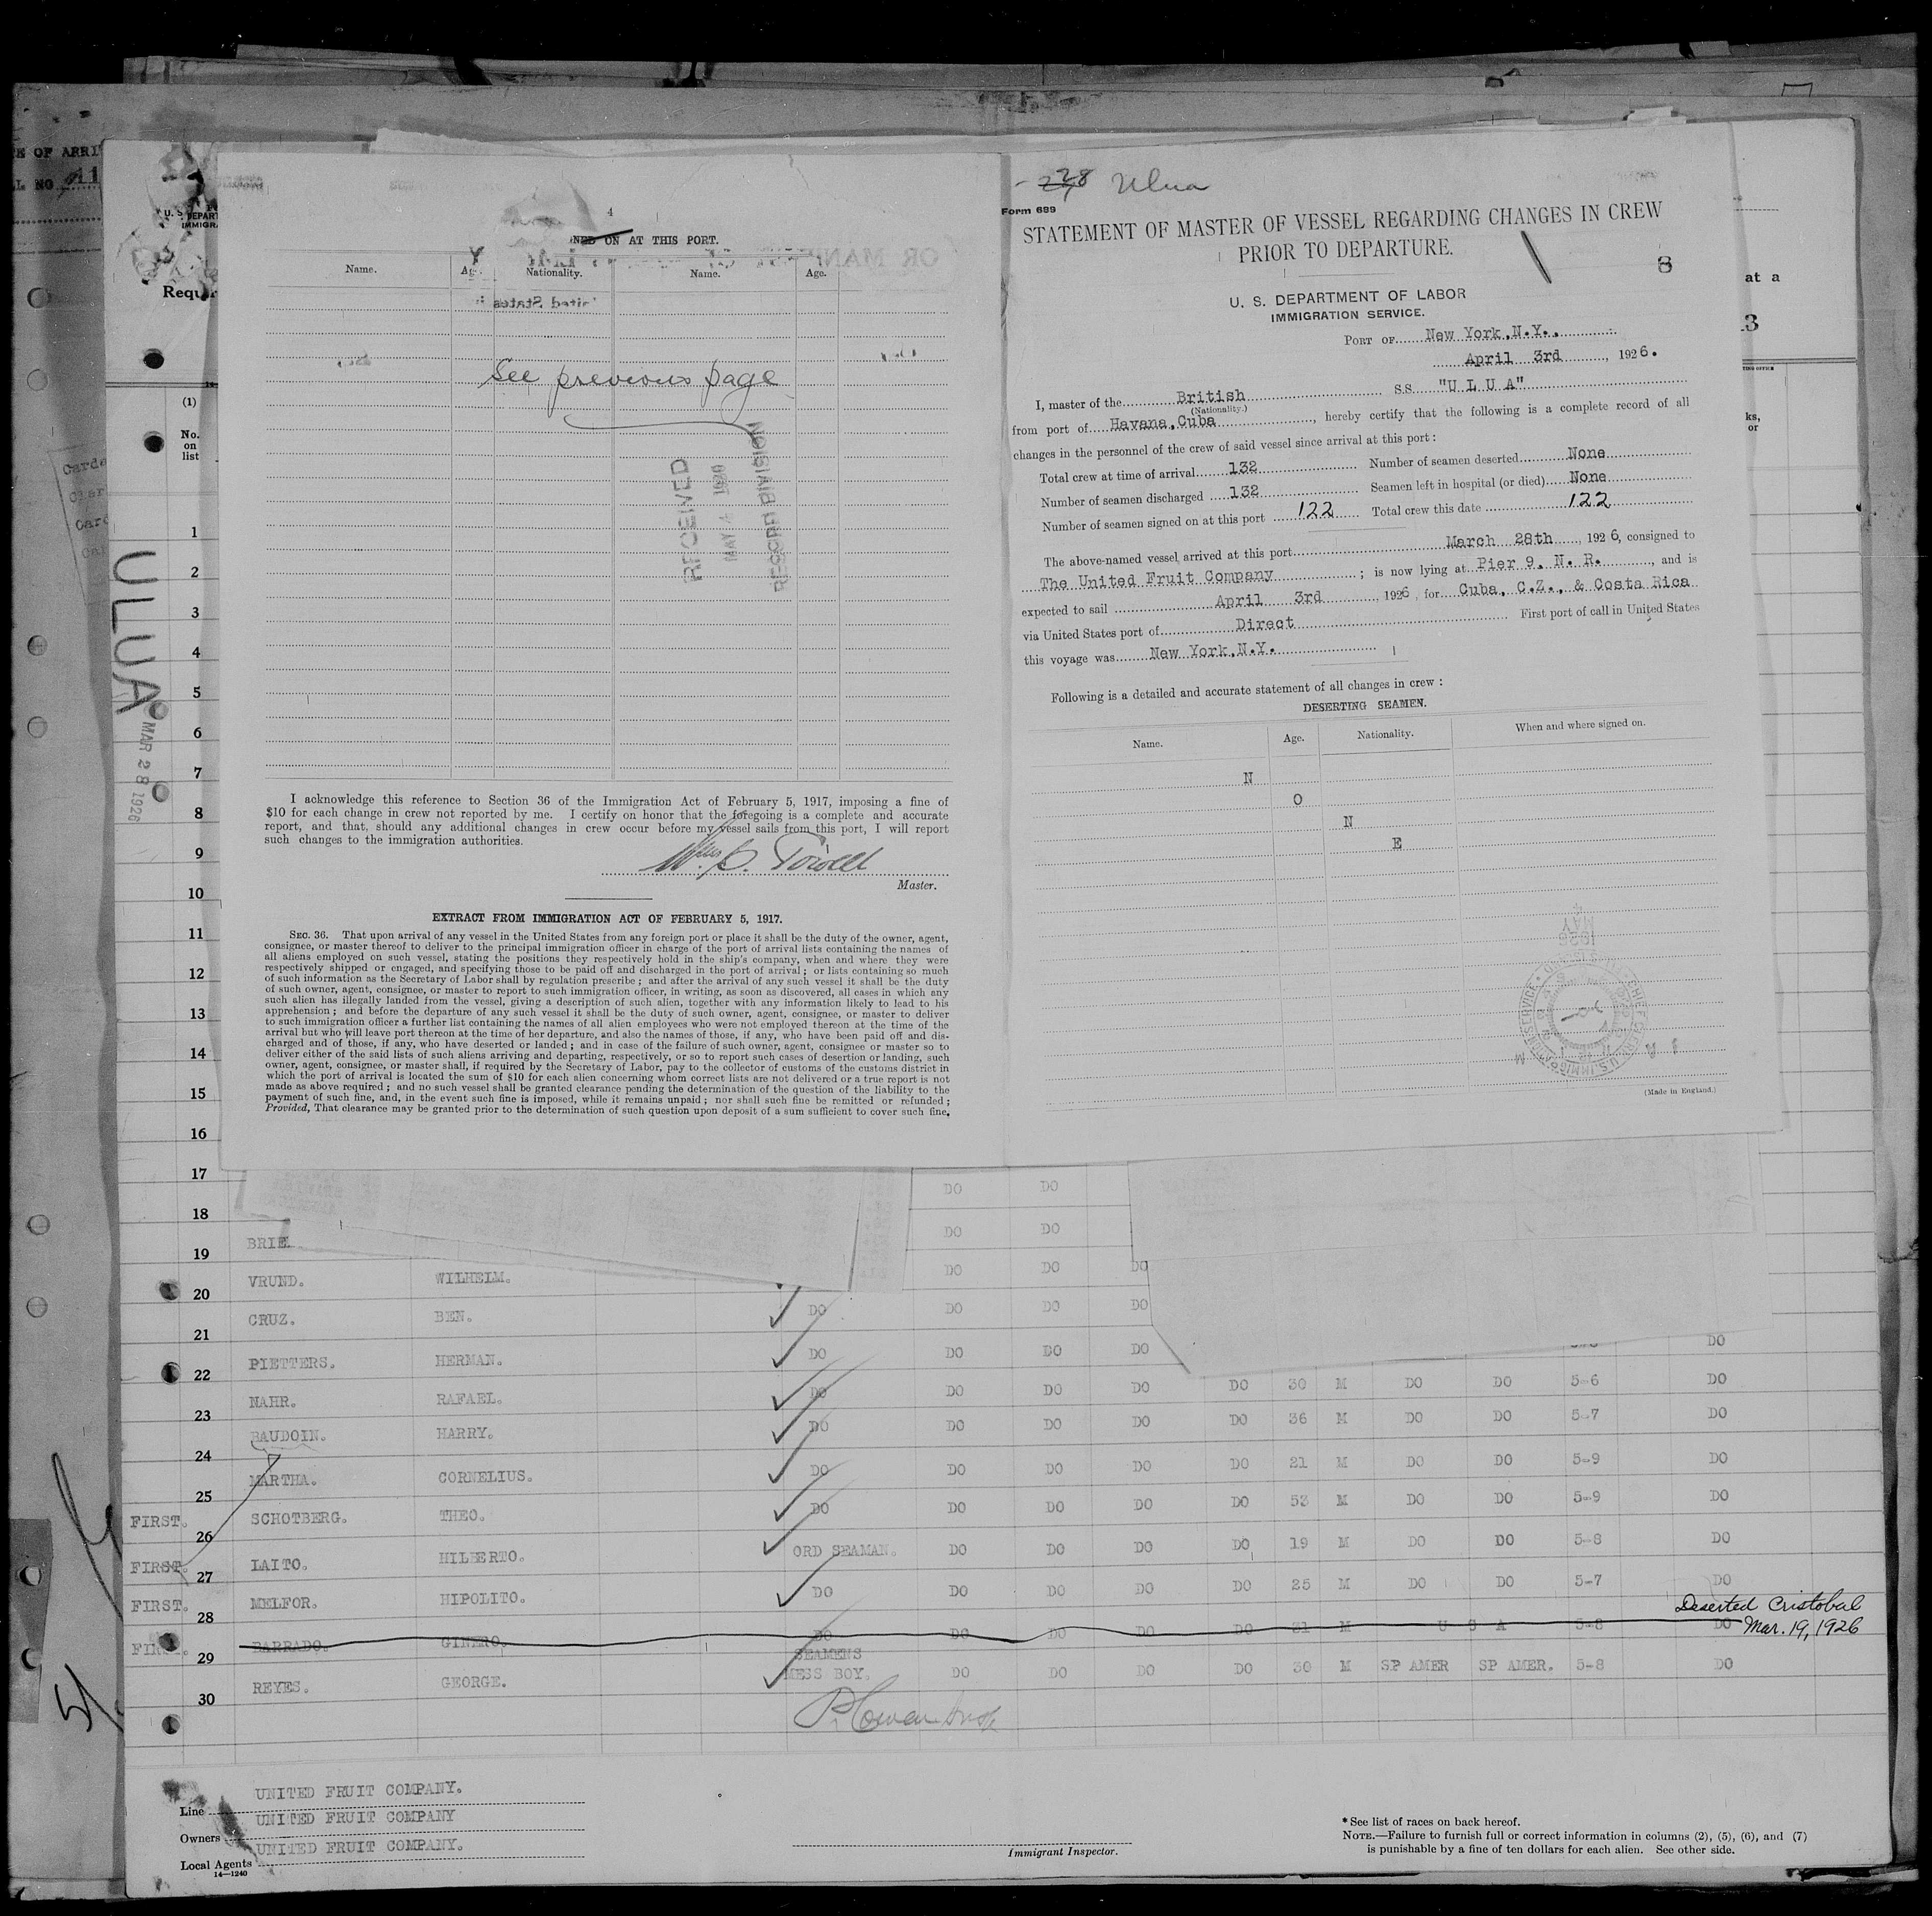 4
ON AT THIS PORT.
Name. Nationality. Name. Age.
See previous page
RECEIVED
MAY 4
RECORD DIVISION
I acknowledge this reference to Section 36 of the Immigration Act of February 5, 1917, imposing a fine of
$10 for each change in crew not reported by me. I certify on honor that the foregoing is a complete and accurate
report, and that, should any additional changes in crew occur before my vessel sails from this port, I will report
such changes to the immigration authorities.
Master.
EXTRACT FROM IMMIGRATION ACT OF FEBRUARY 5, 1917.
SEC. 36. That upon arrival of any vessel in the United States from any foreign port or place it shall be the duty of the owner, agent,
consignee, or master thereof to deliver to the principal immigration officer in charge of the port of arrival lists containing the names of
all aliens employed on such vessel, stating the positions they respectively hold in the ship's company, when and where they were
respectively shipped or engaged, and specifying those to be paid off and discharged in the port of arrival; or lists containing so much
of such information as the Secretary of Labor shall by regulation prescribe; and after the arrival of any such vessel it shall be the duty
of such owner, agent, consignee, or master to report to such immigration officer, in writing, as soon as discovered, all cases in which any
such alien has illegally landed from the vessel, giving a description of such alien, together with any information likely to lead to his
apprehension; and before the departure of any such vessel it shall be the duty of such owner, agent, consignee, or master to deliver
to such immigration officer a further list containing the names of all alien employees who were not employed thereon at the time of the
arrival but who will leave port thereon at the time of her departure, and also the names of those, if any, who have been paid off and dis-
charged and of those, if any, who have deserted or landed; and in case of the failure of such owner, agent, consignee or master so to
deliver either of the said lists of such aliens arriving and departing, respectively, or so to report such cases of desertion or landing, such
owner, agent, consignee, or master shall, if required by the Secretary of Labor, pay to the collector of customs of the customs district in
which the port of arrival is located the sum of $10 for each alien concerning whom correct lists are not delivered or a true report is not
made as above required; and no such vessel shall be granted clearance pending the determination of the question of the liability to the
payment of such fine, and, in the event such fine is imposed, while it remains unpaid; nor shall such fine be remitted or refunded;
Provided, That clearance may be granted prior to the determination of such question upon deposit of a sum sufficient to cover such fine.
Ulua
Form 689
STATEMENT OF MASTER OF VESSEL REGARDING CHANGES IN CREW
PRIOR TO DEPARTURE.
8
U. S. DEPARTMENT OF LABOR
IMMIGRATION SERVICE.
PORT OF New York, N.Y.,
April 3rd, 1926.
I, master of the British S.S. "U L U A"
(Nationality.)
from port of Havana, Cuba, hereby certify that the following is a complete record of all
changes in the personnel of the crew of said vessel since arrival at this port:
Total crew at time of arrival 132 Number of seamen deserted None
Number of seamen discharged 132 Seamen left in hospital (or died) None
Number of seamen signed on at this port 122 Total crew this date 122
The above-named vessel arrived at this port March 28th, 1926, consigned to
The United Fruit Company; is now lying at Pier 9, N. R., and is
expected to sail April 3rd, 1926, for Cuba, C.Z., & Costa Rica
via United States port of Direct First port of call in United States
this voyage was New York, N.Y.
Following is a detailed and accurate statement of all changes in crew:
DESERTING SEAMEN.
Name. Age. Nationality. When and where signed on.
N
O
N
E
(Made in England.)
at a
ks,
or
(1)
No.
on
list
ULUA
MAR 28 1926
1
2
3
4
5
6
7
8
9
10
11
12
13
14
15
16
17 DO DO
18 DO DO
19 BRIE DO DO DO
20 VRUND. WILHELM.
CRUZ. BEN. DO DO DO DO
21 PIETTERS. HERMAN. DO DO DO DO DO
22 NAHR. RAFAEL. DO DO DO DO DO 30 M DO DO 5-6 DO
23 BAUDOIN. HARRY. DO DO DO DO DO 36 M DO DO 5-7 DO
24 MARTHA. CORNELIUS. DO DO DO DO DO 21 M DO DO 5-9 DO
25 FIRST. SCHOTBERG. THEO. DO DO DO DO DO 52 M DO DO 5-9 DO
26 FIRST. LAITO. HILBERTO. ORD SEAMAN. DO DO DO DO 19 M DO DO 5-8 DO
27 FIRST. MELFOR. HIPOLITO. DO DO DO DO DO 25 M DO DO 5-7 DO
28 FIRST. BARRADO. GINERO. DO DO DO DO DO 21 M U S A 5-8 DO Deserted Cristobal Mar. 19, 1926
29 REYES. GEORGE. SEAMENS MESS BOY. DO DO DO DO 30 M SP AMER SP AMER. 5-8 DO
30
Line UNITED FRUIT COMPANY.
Owners UNITED FRUIT COMPANY
Local Agents UNITED FRUIT COMPANY.
14—1240
Immigrant Inspector.
* See list of races on back hereof.
NOTE.—Failure to furnish full or correct information in columns (2), (5), (6), and (7)
is punishable by a fine of ten dollars for each alien. See other side.